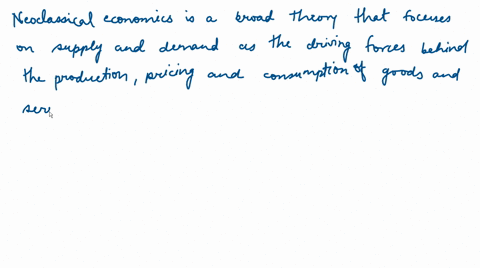 Neoclassical economics is a broad theory that focuses
on supply and demand as the driving forces behind
the production, pricing and consumption of goods and
serv